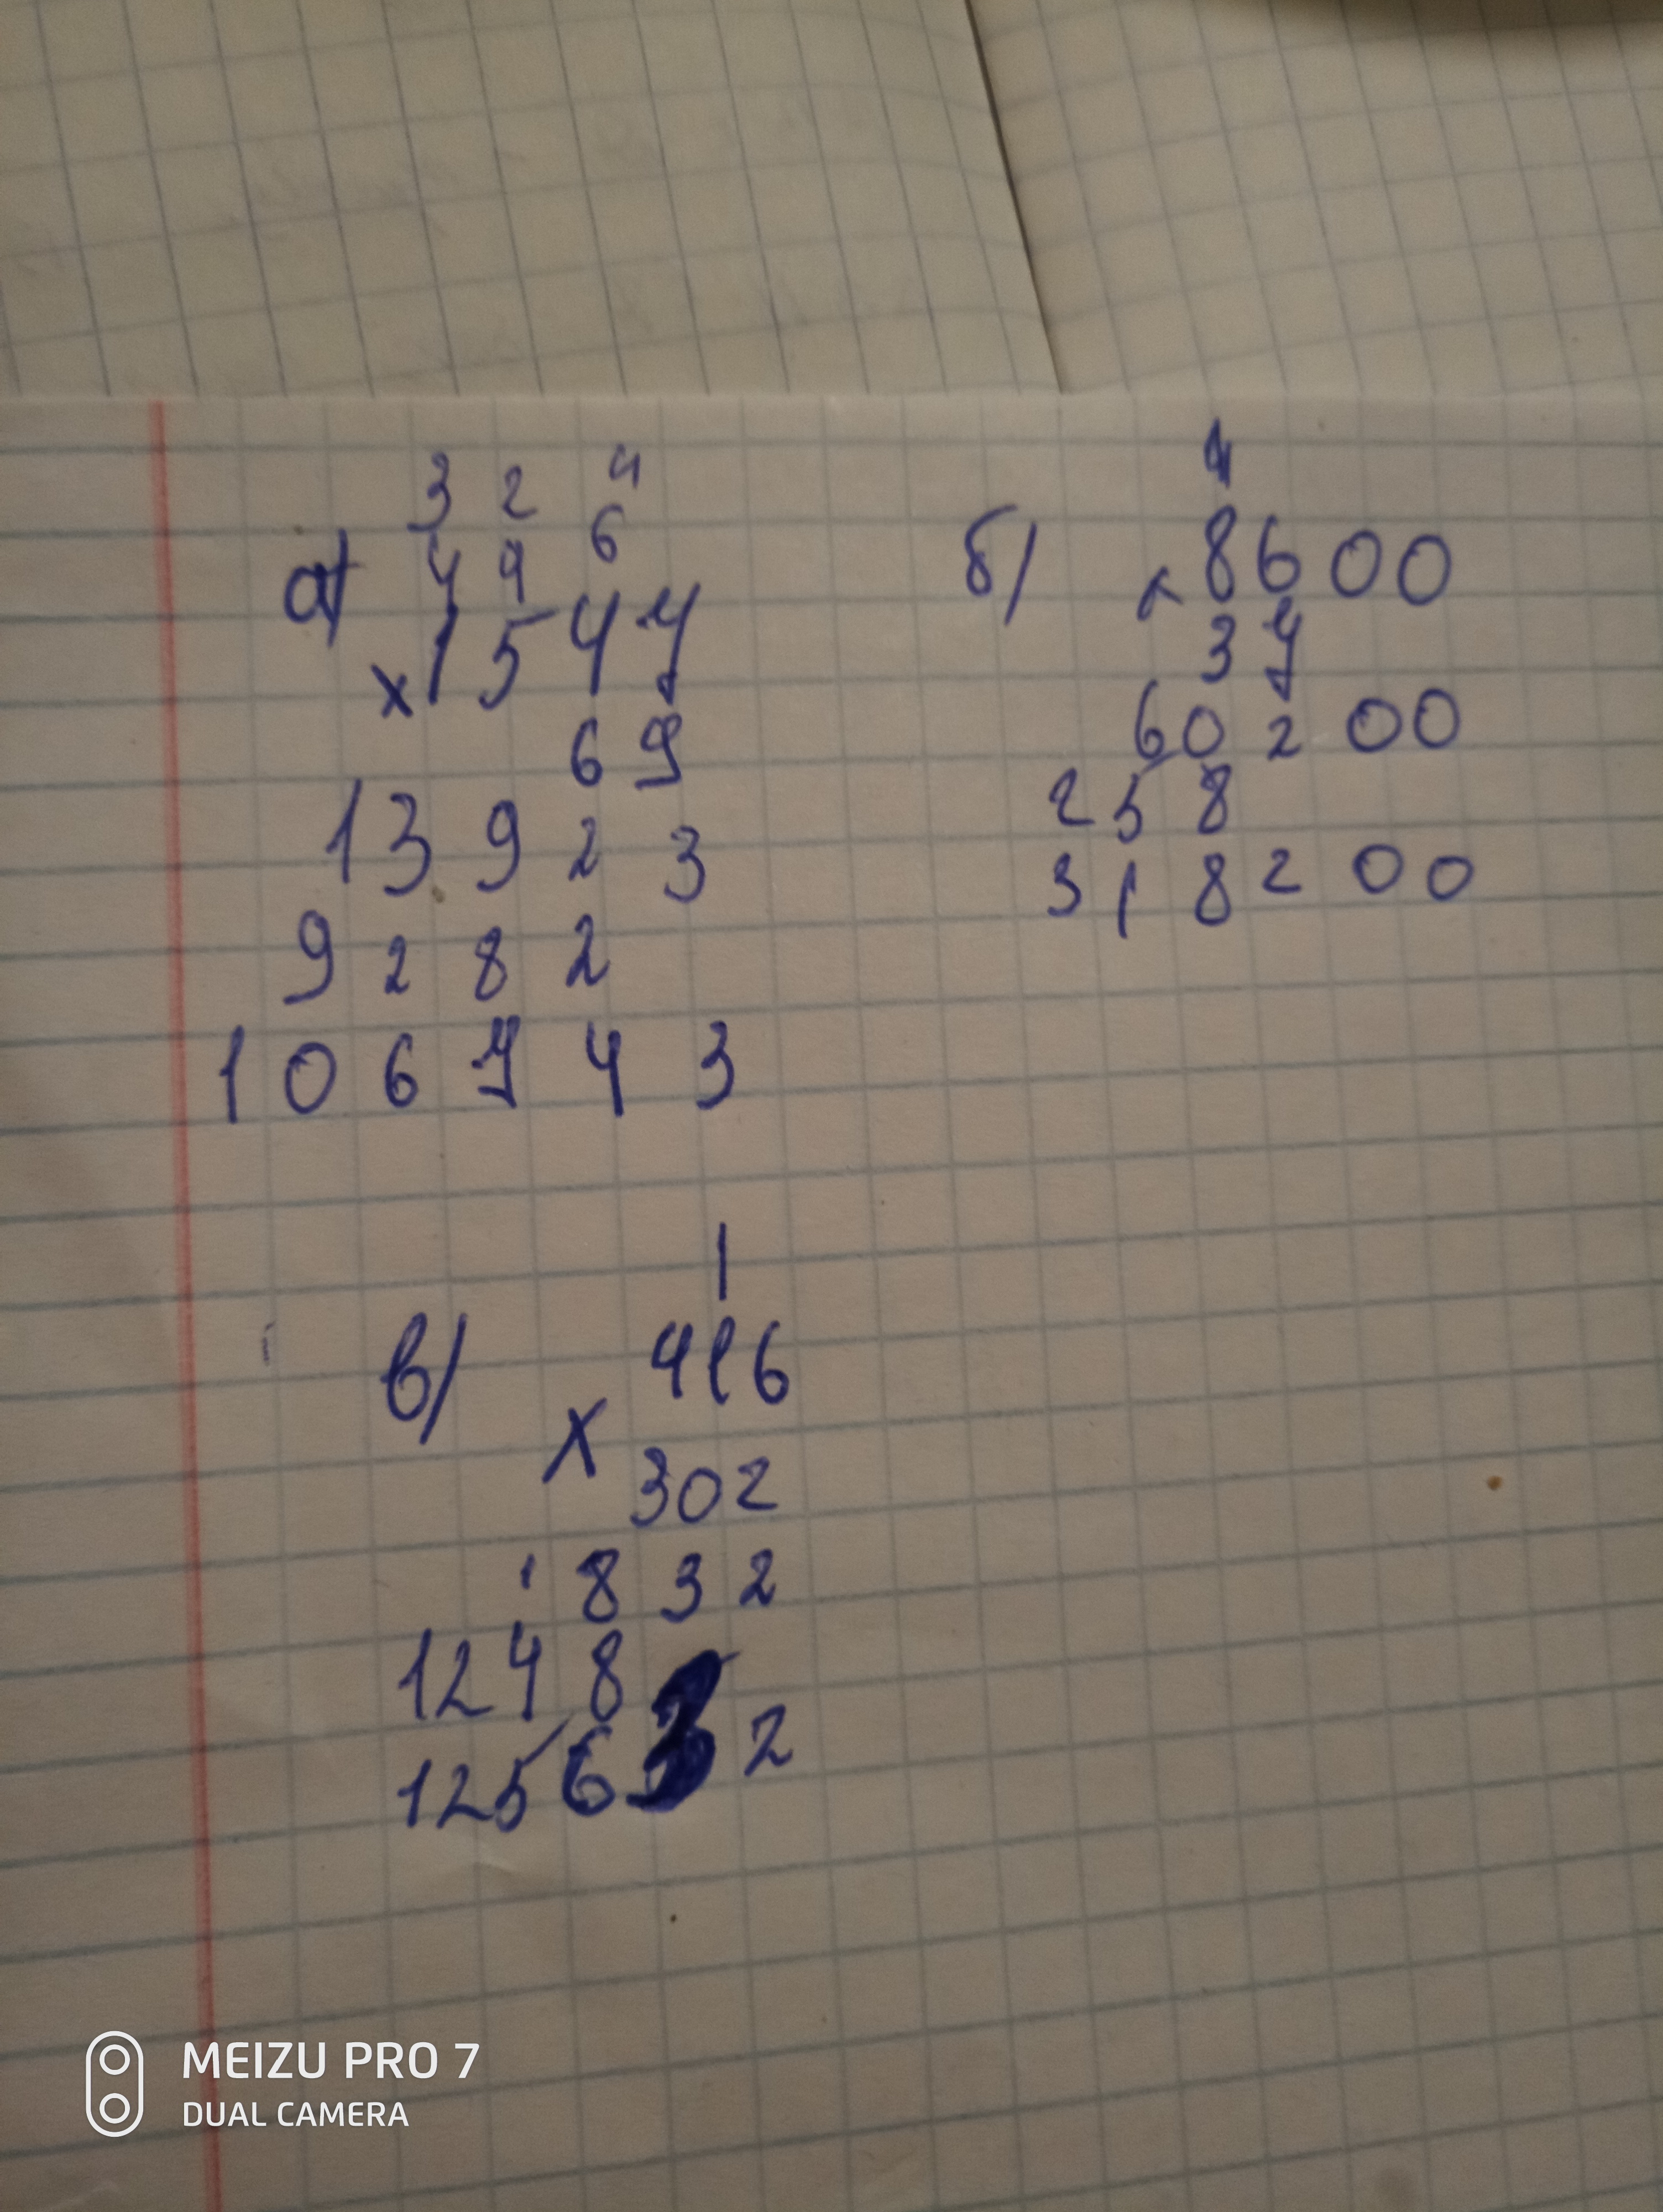 3 2 4
4 4 6
а) × 1547
69
13923
9282
106743
4
б) × 8600
37
60200
258
318200
1
в) 416
× 302
1832
1248
125632
MEIZU PRO 7
DUAL CAMERA